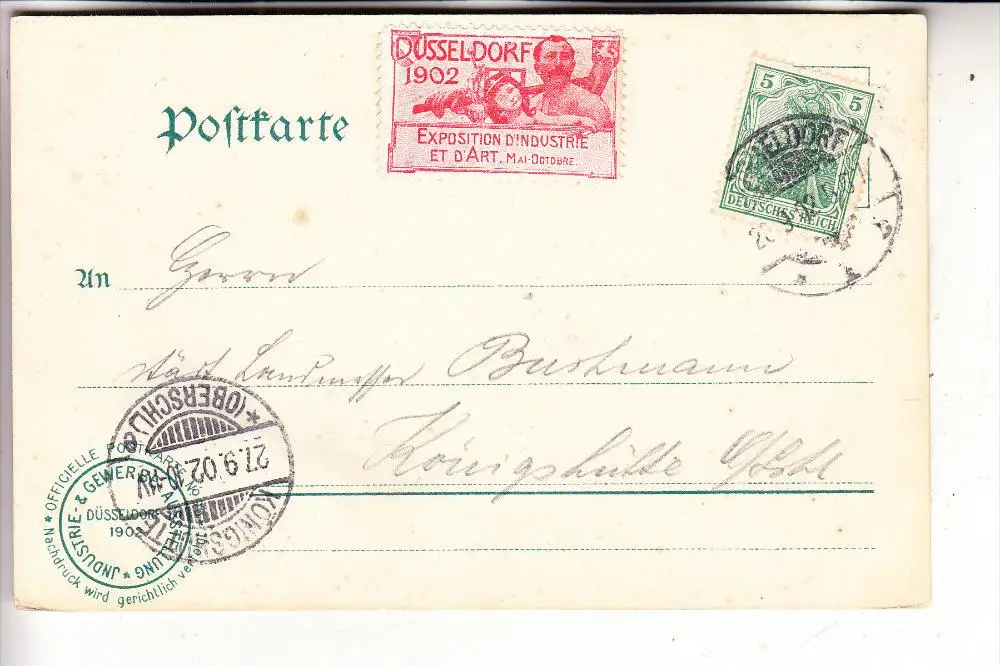 DÜSSELDORF
1902
EXPOSITION D'INDUSTRIE
ET D'ART. MAI-OCTOBRE.
Postkarte
5 5
DEUTSCHES REICH
ELDORF
An Herrn
städt Landmesser Bushmann
Königshütte O/Schl
*(OBERSCHL)*
27.9.02
KÖNIGSHÜTTE
* OFFICIELLE POSTKARTE No
Nachdruck wird gerichtlich
JNDUSTRIE- & GEWERBE AUSSTELLUNG *
DÜSSELDORF
1902